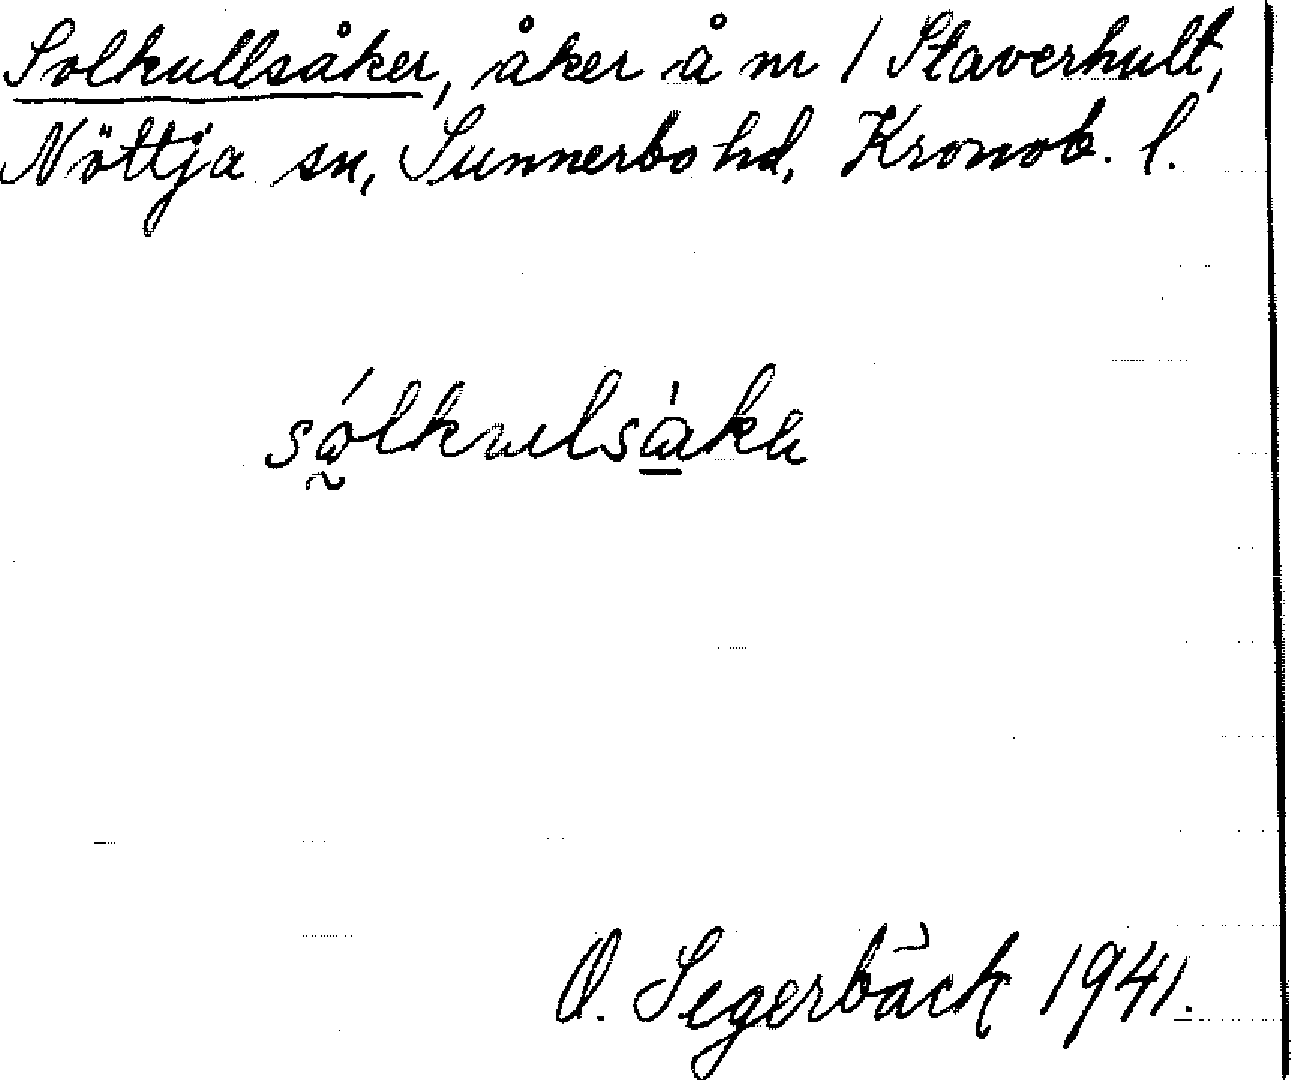 Solkullsåker, åker å nr 1 Staverhult,
Nöttja sn, Sunnerbo hd, Kronob. l.
sólkulsàka
O. Segerbäck 1941.